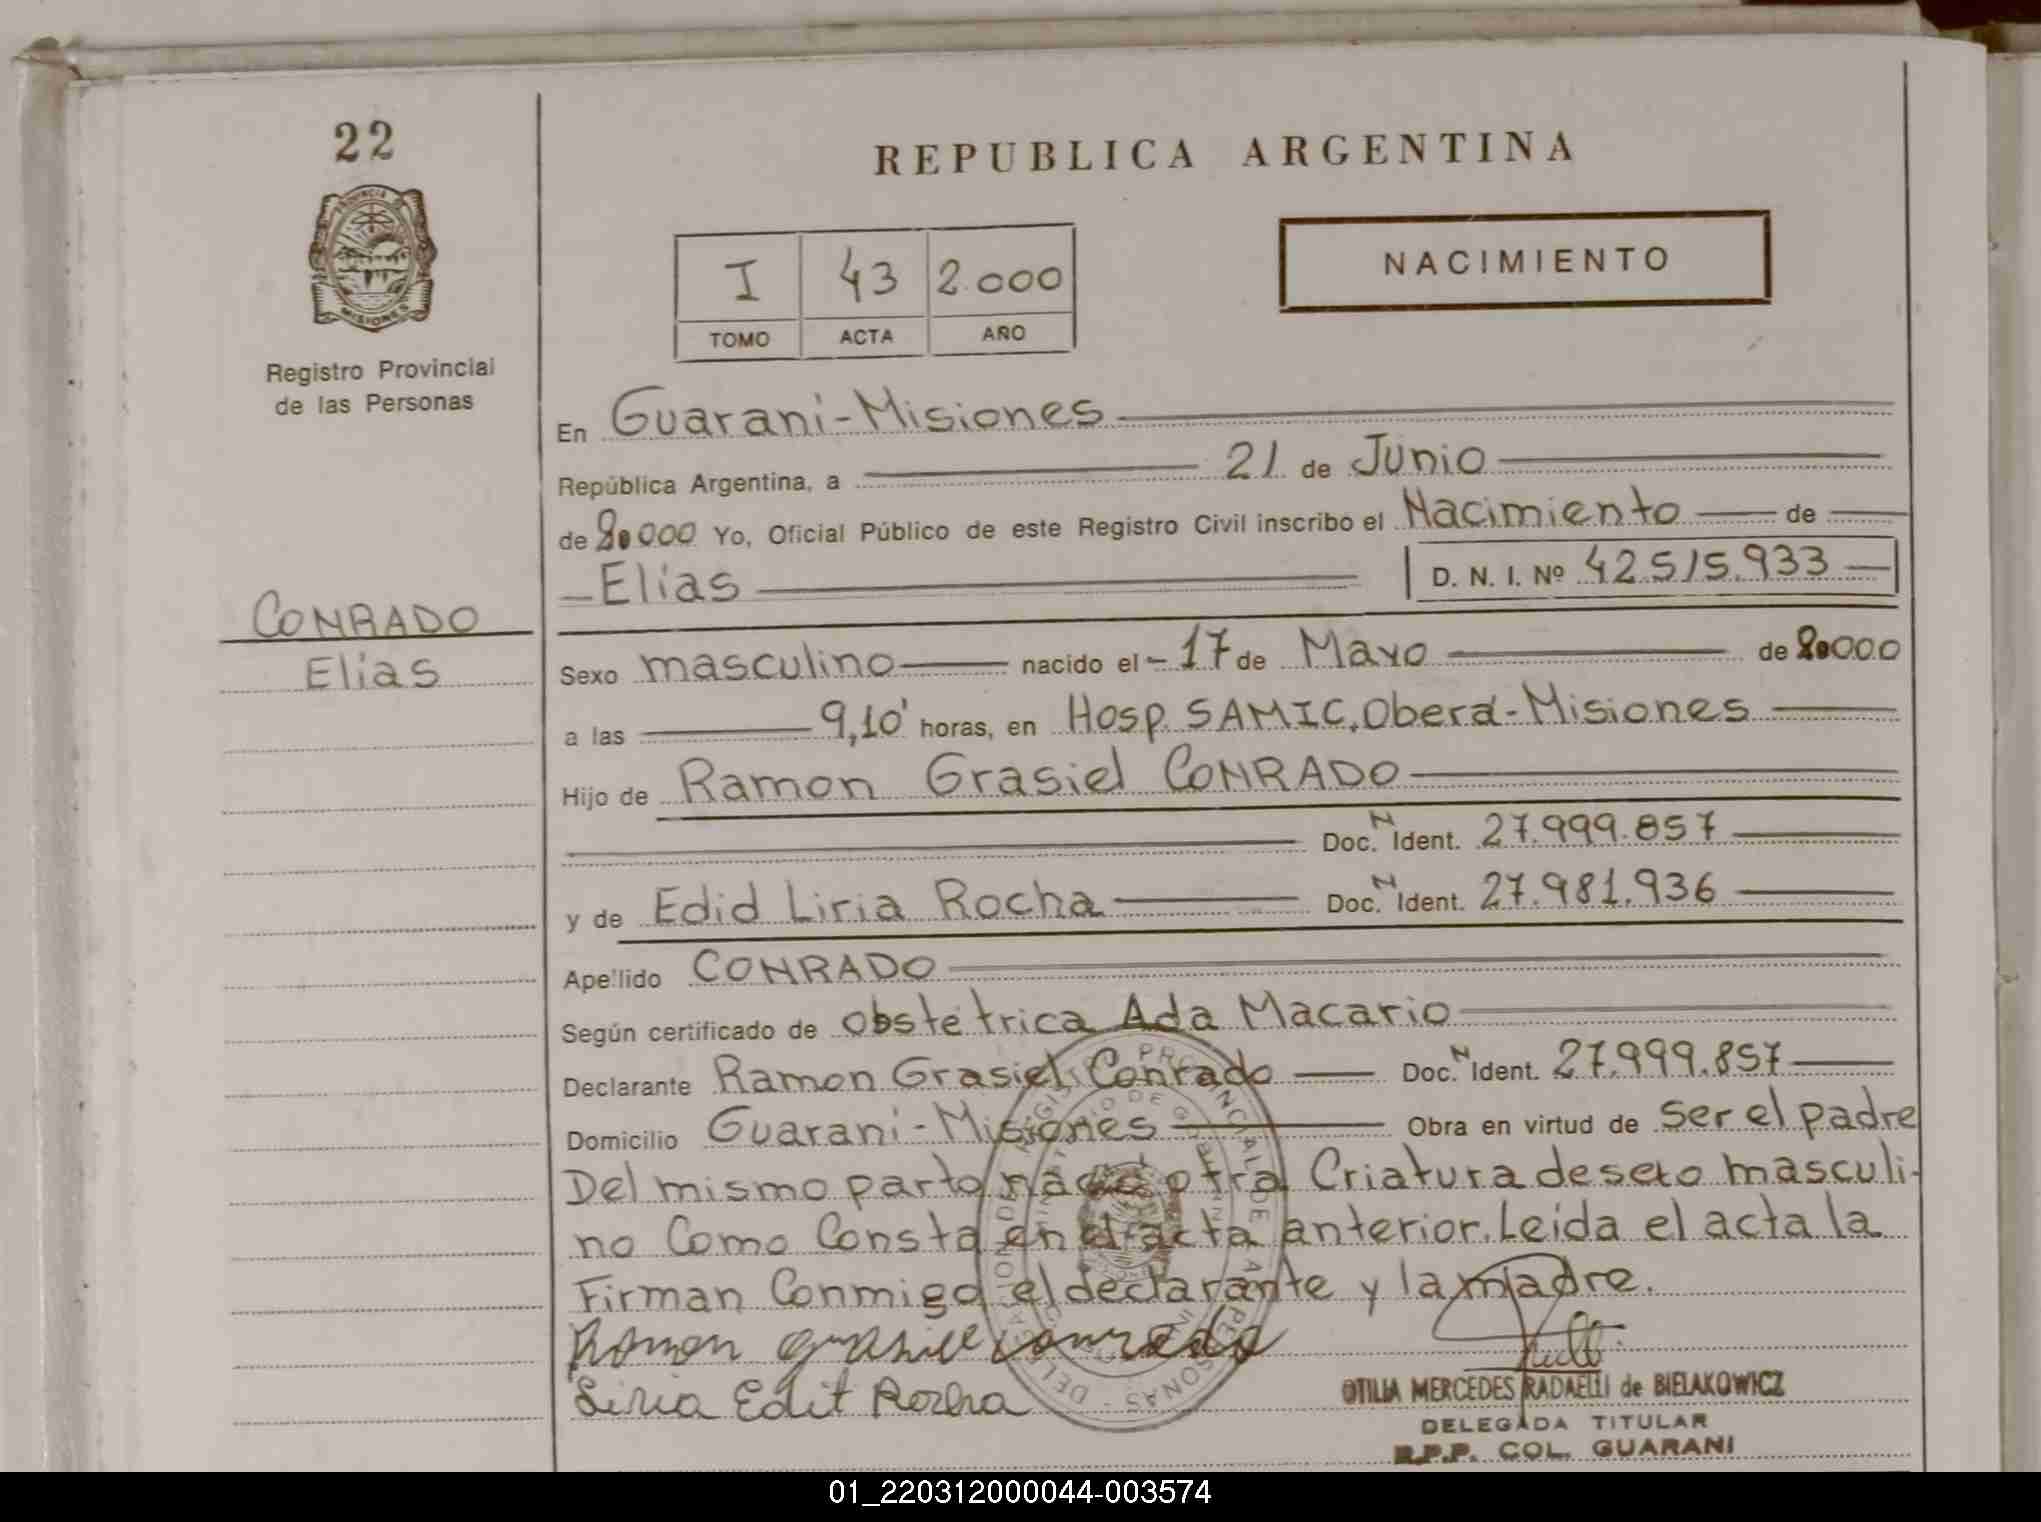 22
PROVINCIA
MISIONES
Registro Provincial
de las Personas
REPUBLICA ARGENTINA
I 43 2.000
TOMO ACTA AÑO
NACIMIENTO
En Guarani-Misiones
República Argentina, a 21 de Junio
de 2.000 Yo, Oficial Público de este Registro Civil inscribo el Nacimiento de
Elias D. N. I. Nº 42.515.933
CONRADO
Elias
Sexo masculino nacido el 17 de Mayo de 2.000
a las 9,10' horas, en Hosp. SAMIC. Oberá-Misiones
Hijo de Ramon Grasiel CONRADO
Doc. N Ident. 27.999.857
y de Edid Liria Rocha Doc. N Ident. 27.981.936
Apellido CONRADO
Según certificado de obstétrica Ada Macario
Declarante Ramon Grasiel Conrado Doc. N Ident. 27.999.857
Domicilio Guarani-Misiones Obra en virtud de ser el padre
Del mismo parto nació otra Criatura de sexo masculi-
no Como Consta en el acta anterior. Leida el acta la
Firman Conmigo el declarante y la madre.
Ramon Conrado
Liria Edit Rocha
OTILIA MERCEDES RADAELLI de BIELAKOWICZ
DELEGADA TITULAR
R.P.P. COL. GUARANI
01_220312000044-003574